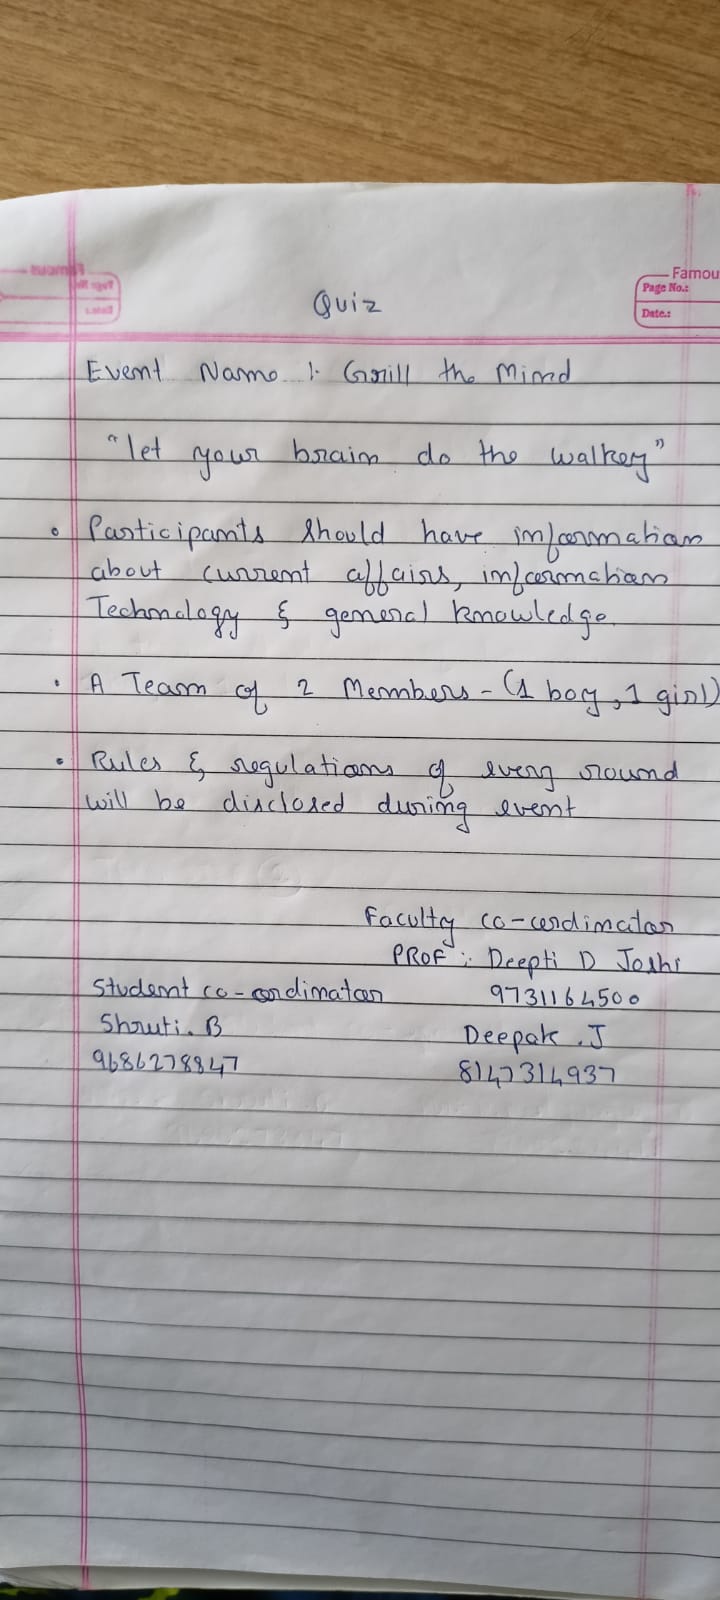 Famou
Page No.:
Date.:
Quiz
Event Name :- Grill the Mind
"let your brain do the walkey"
• Participants should have information
about current affairs, information
Technology & general knowledge.
• A Team of 2 Members - (1 boy, 1 girl)
• Rules & regulations of every round
will be disclosed during event
Faculty co-ordinator
PROF :- Deepti D Joshi
9731164500
Student co-ordinator
Shruti. B
9686278847
Deepak .J
8147314937